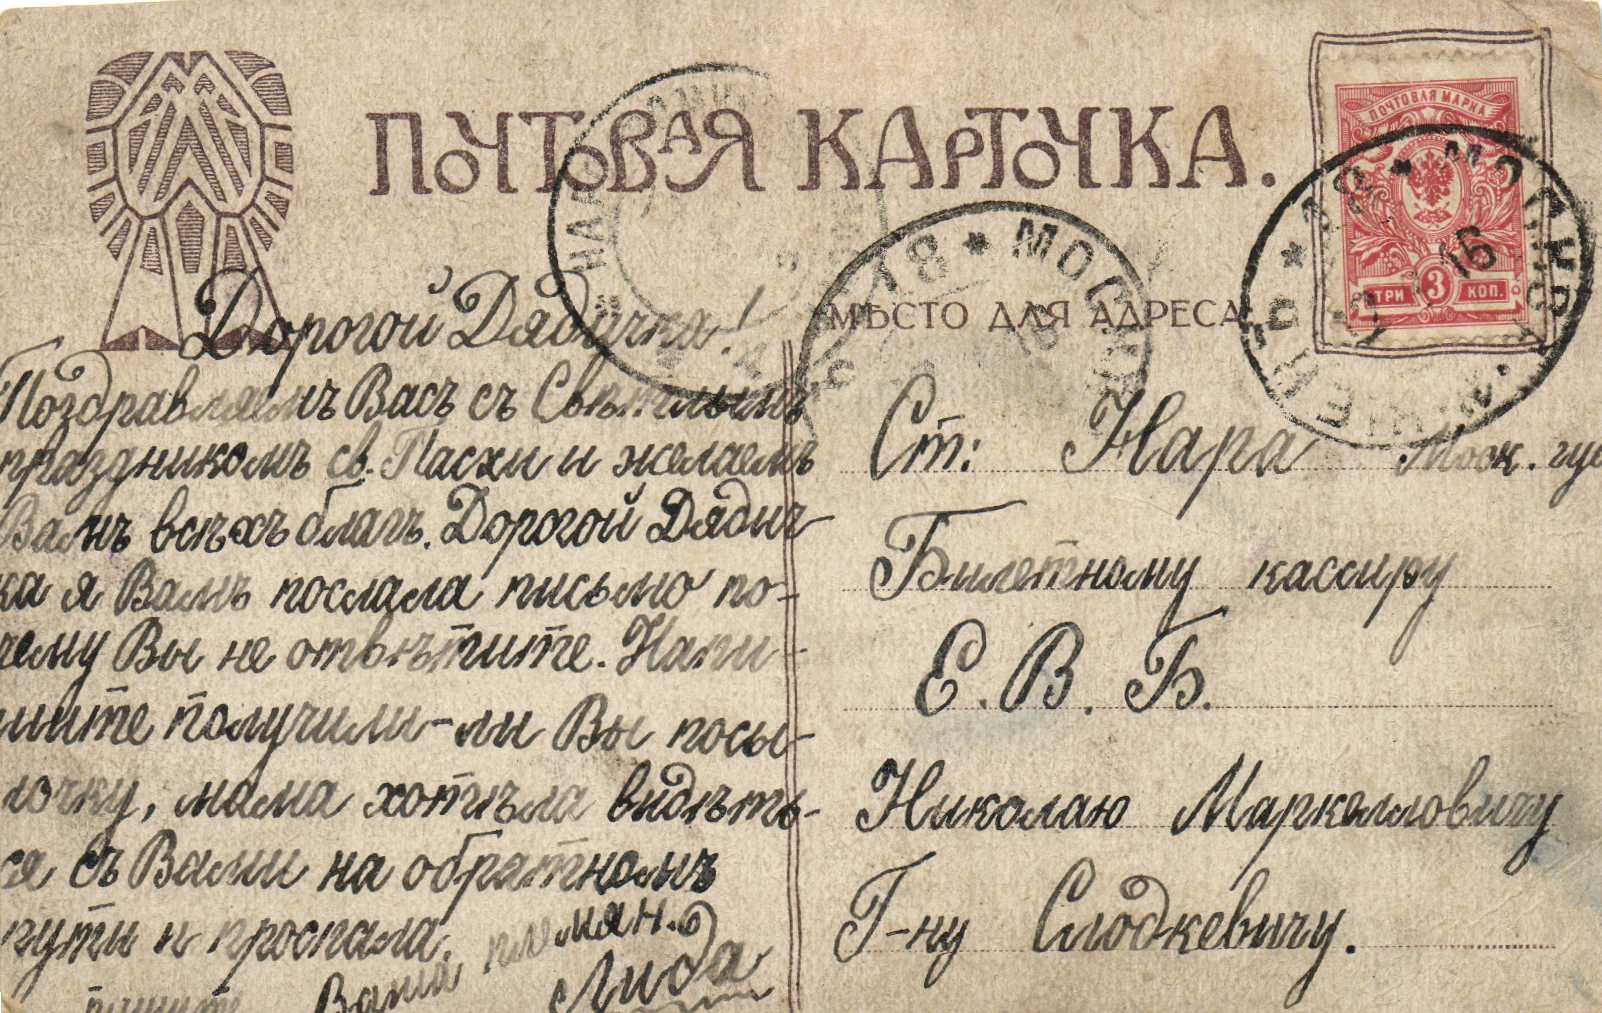 ПОЧТОВАЯ КАРТОЧКА.
ПОЧТОВАЯ МАРКА
ТРИ 3 КОП.
МОСКВА
16
18 * МОСК
МѢСТО ДЛЯ АДРЕСА
Дорогой Дядичка!
Поздравляемъ Васъ съ Свѣтлымъ
праздникомъ св. Пасхи и желаемъ
Вамъ всѣхъ благъ. Дорогой Дядич
ка я Вамъ послала письмо по-
чему Вы не отвѣтите. Напи-
шите получили-ли Вы посы-
лочку, мама хотѣла видѣть-
ся съ Вами на обратномъ
пути и проспала.
пишите Ваша племян.
Лида
Ст: Нара Моск. губ
Билетному кассиру
Е. В. Б.
Николаю Маркелловичу
Г-ну Слодкевичу.